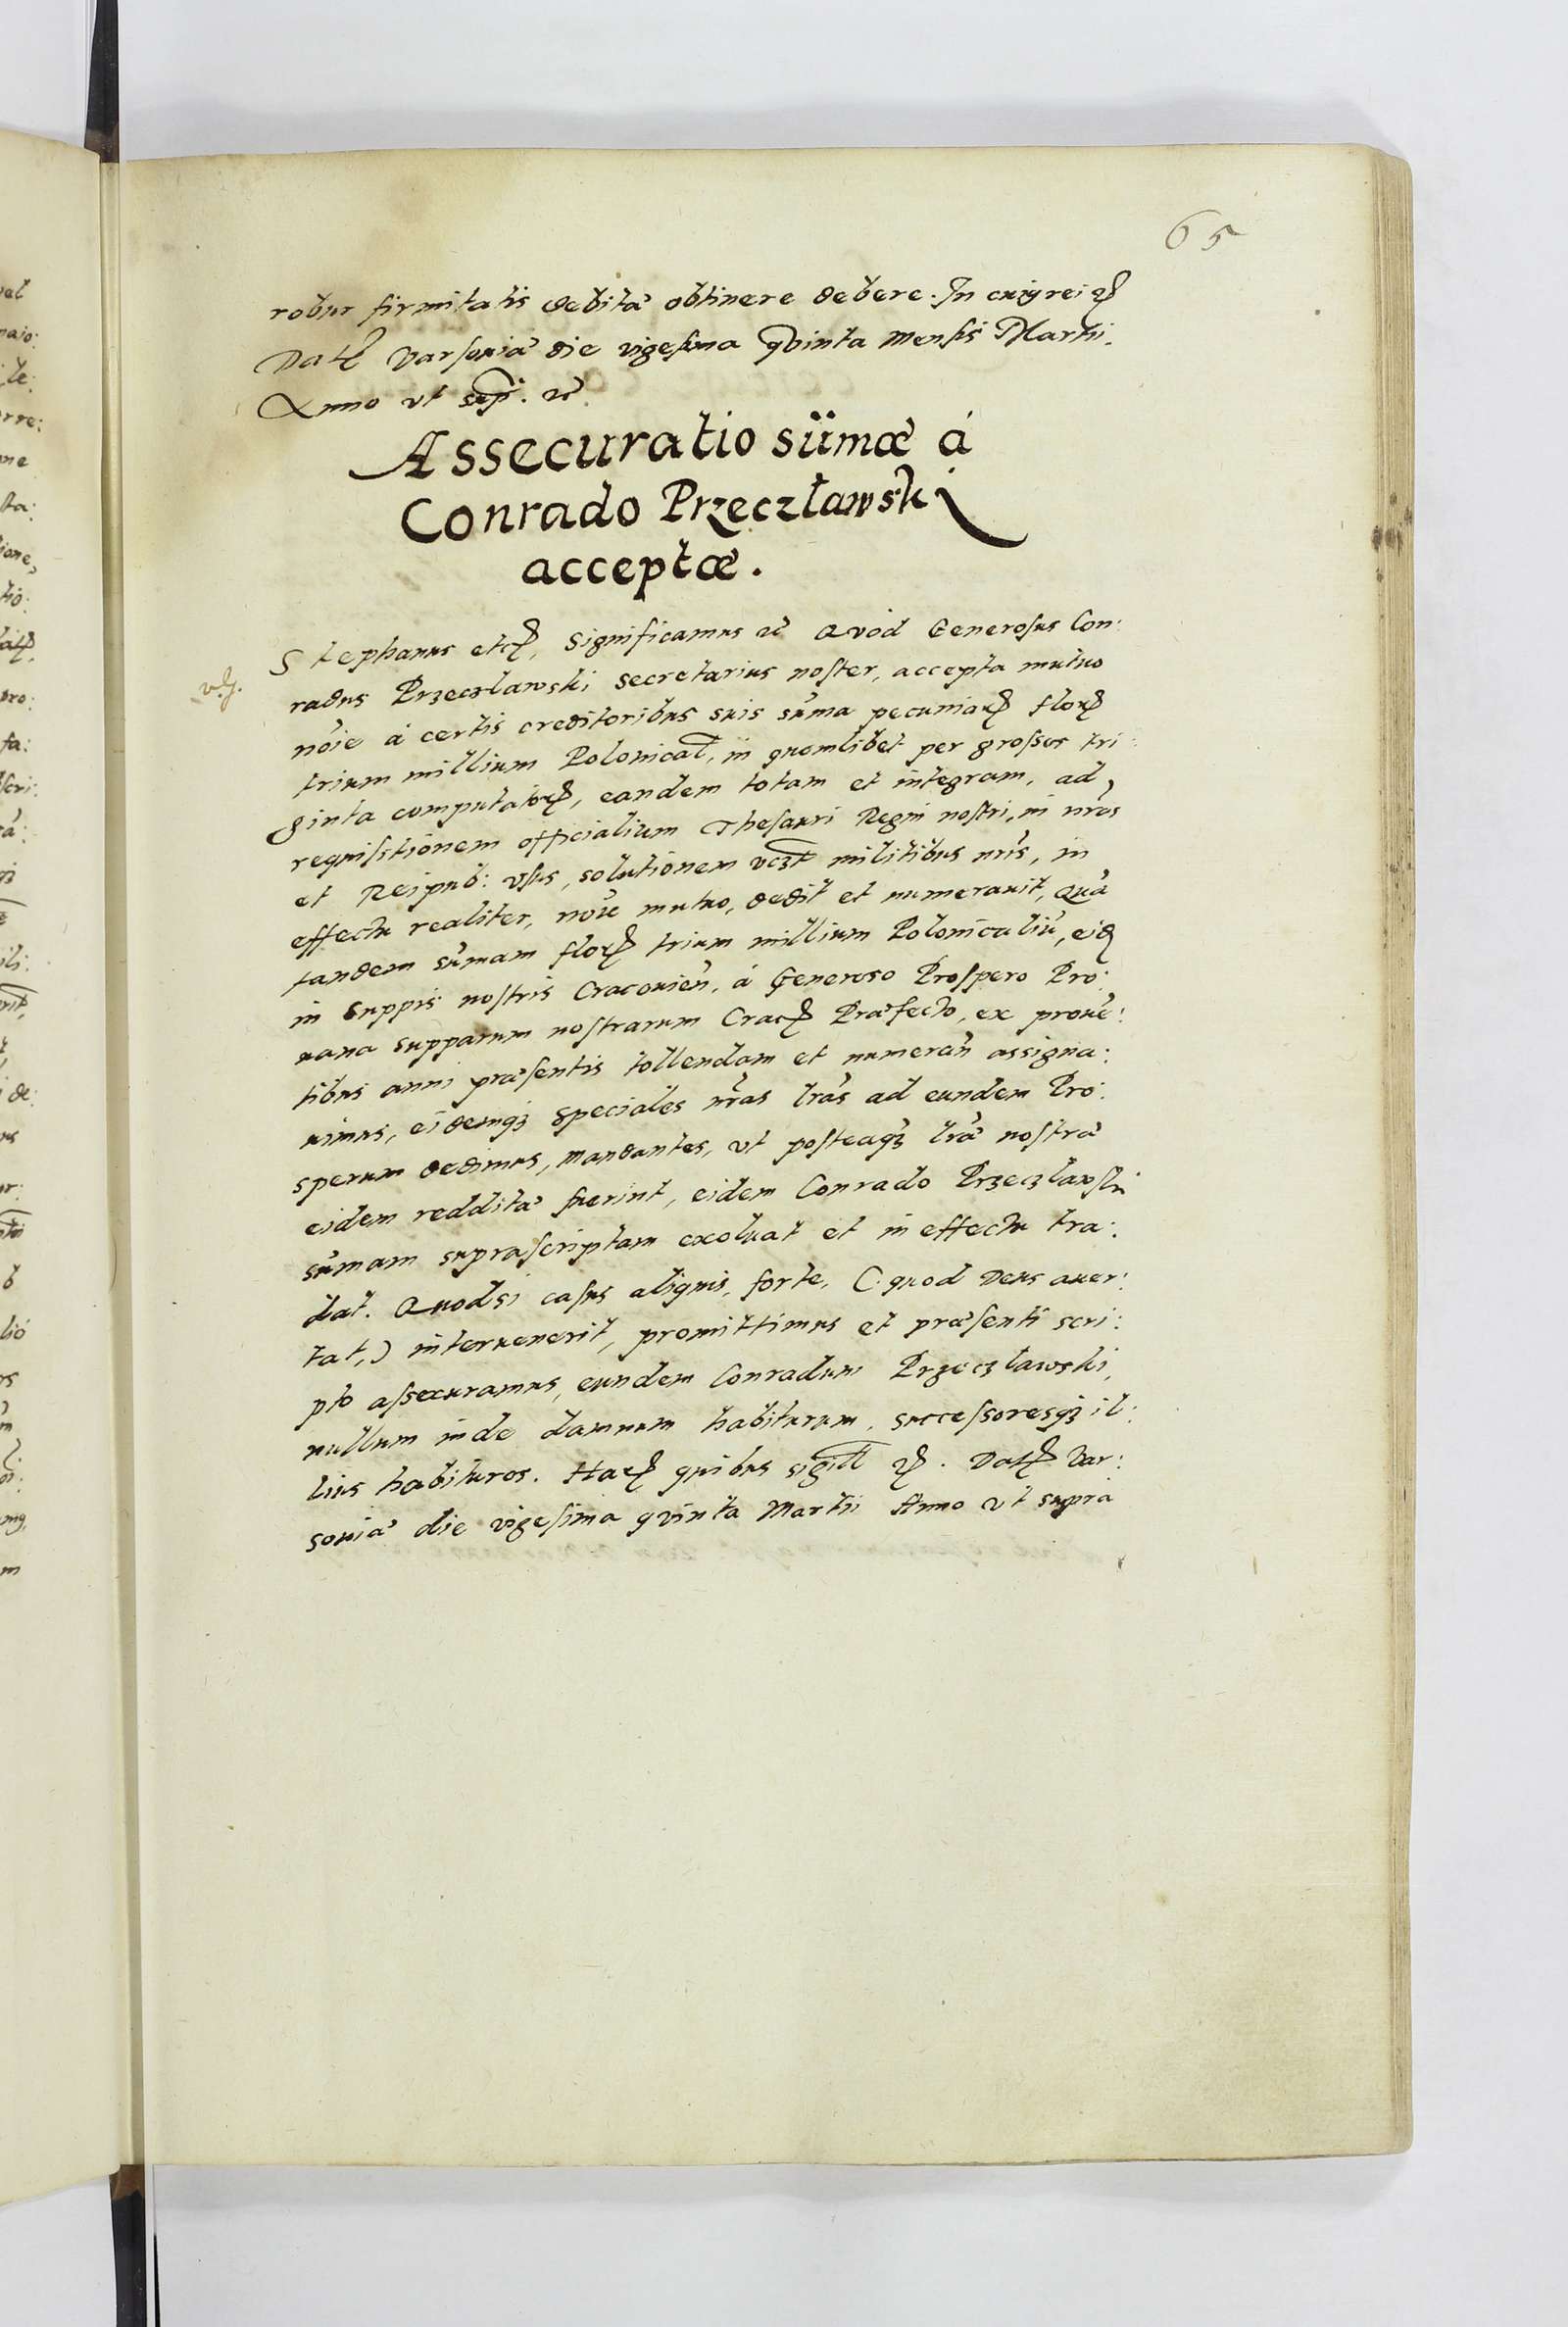 65
robur firmitatis debitã obtinere debere. In cuiq rei
Dat Varsouiæ die vigesima qvinta mensis Martii.
Anno vt sup. etc
Assecuratio sũmæ á
Conrado Przeczławski
acceptæ.
Stephanus etc, Significamus etc Qvod Generosus Con:
radus Przeczlawski secretarius noster, accepta mutuo
nõie á certis creditoribus suis sũma pecuniar flor
trium millium Polonical, in quemlibet per grossos tri:
ginta computator, eandem totam et integram, ad
requisitionem officialium Thesauri Regni nostri, in nr̃os
et Reipub: vsus, solutionem vczt militibus nr̃is, in
effectu realiter, noie mutuo, dedit et numerauit, Quã
tandem sũmam flor trium millium Polonicaliũ, eid
in suppis nostris Cracouien̄, á Generoso Prospero Pro:
uana supparum nostrarum Crac Præfecto, ex prouẽ:
tibus anni præsentis tollendam et numeran̄ assigna:
uimus, eidemqz speciales nr̃as lr̃as ad eundem Pro:
sperum dedimus, mandantes, vt posteaqz lr̃æ nostræ
eidem redditæ fuerint, eidem Conrado Przeczlawski
sũmam suprascriptam exoluat et in effectu tra:
dat. Quodsi casus aliquis, forte, (quod Deus auer:
tat,) interuenerit, promittimus et præsenti scri:
pto assecuramus, eundem Conradum Przeczlawski,
nullum inde damnum habiturum, successoresqz il:
lius habituros. Har quibus sigill etc. Dat Var:
souiæ die vigesima qvinta Martii Anno vt supra